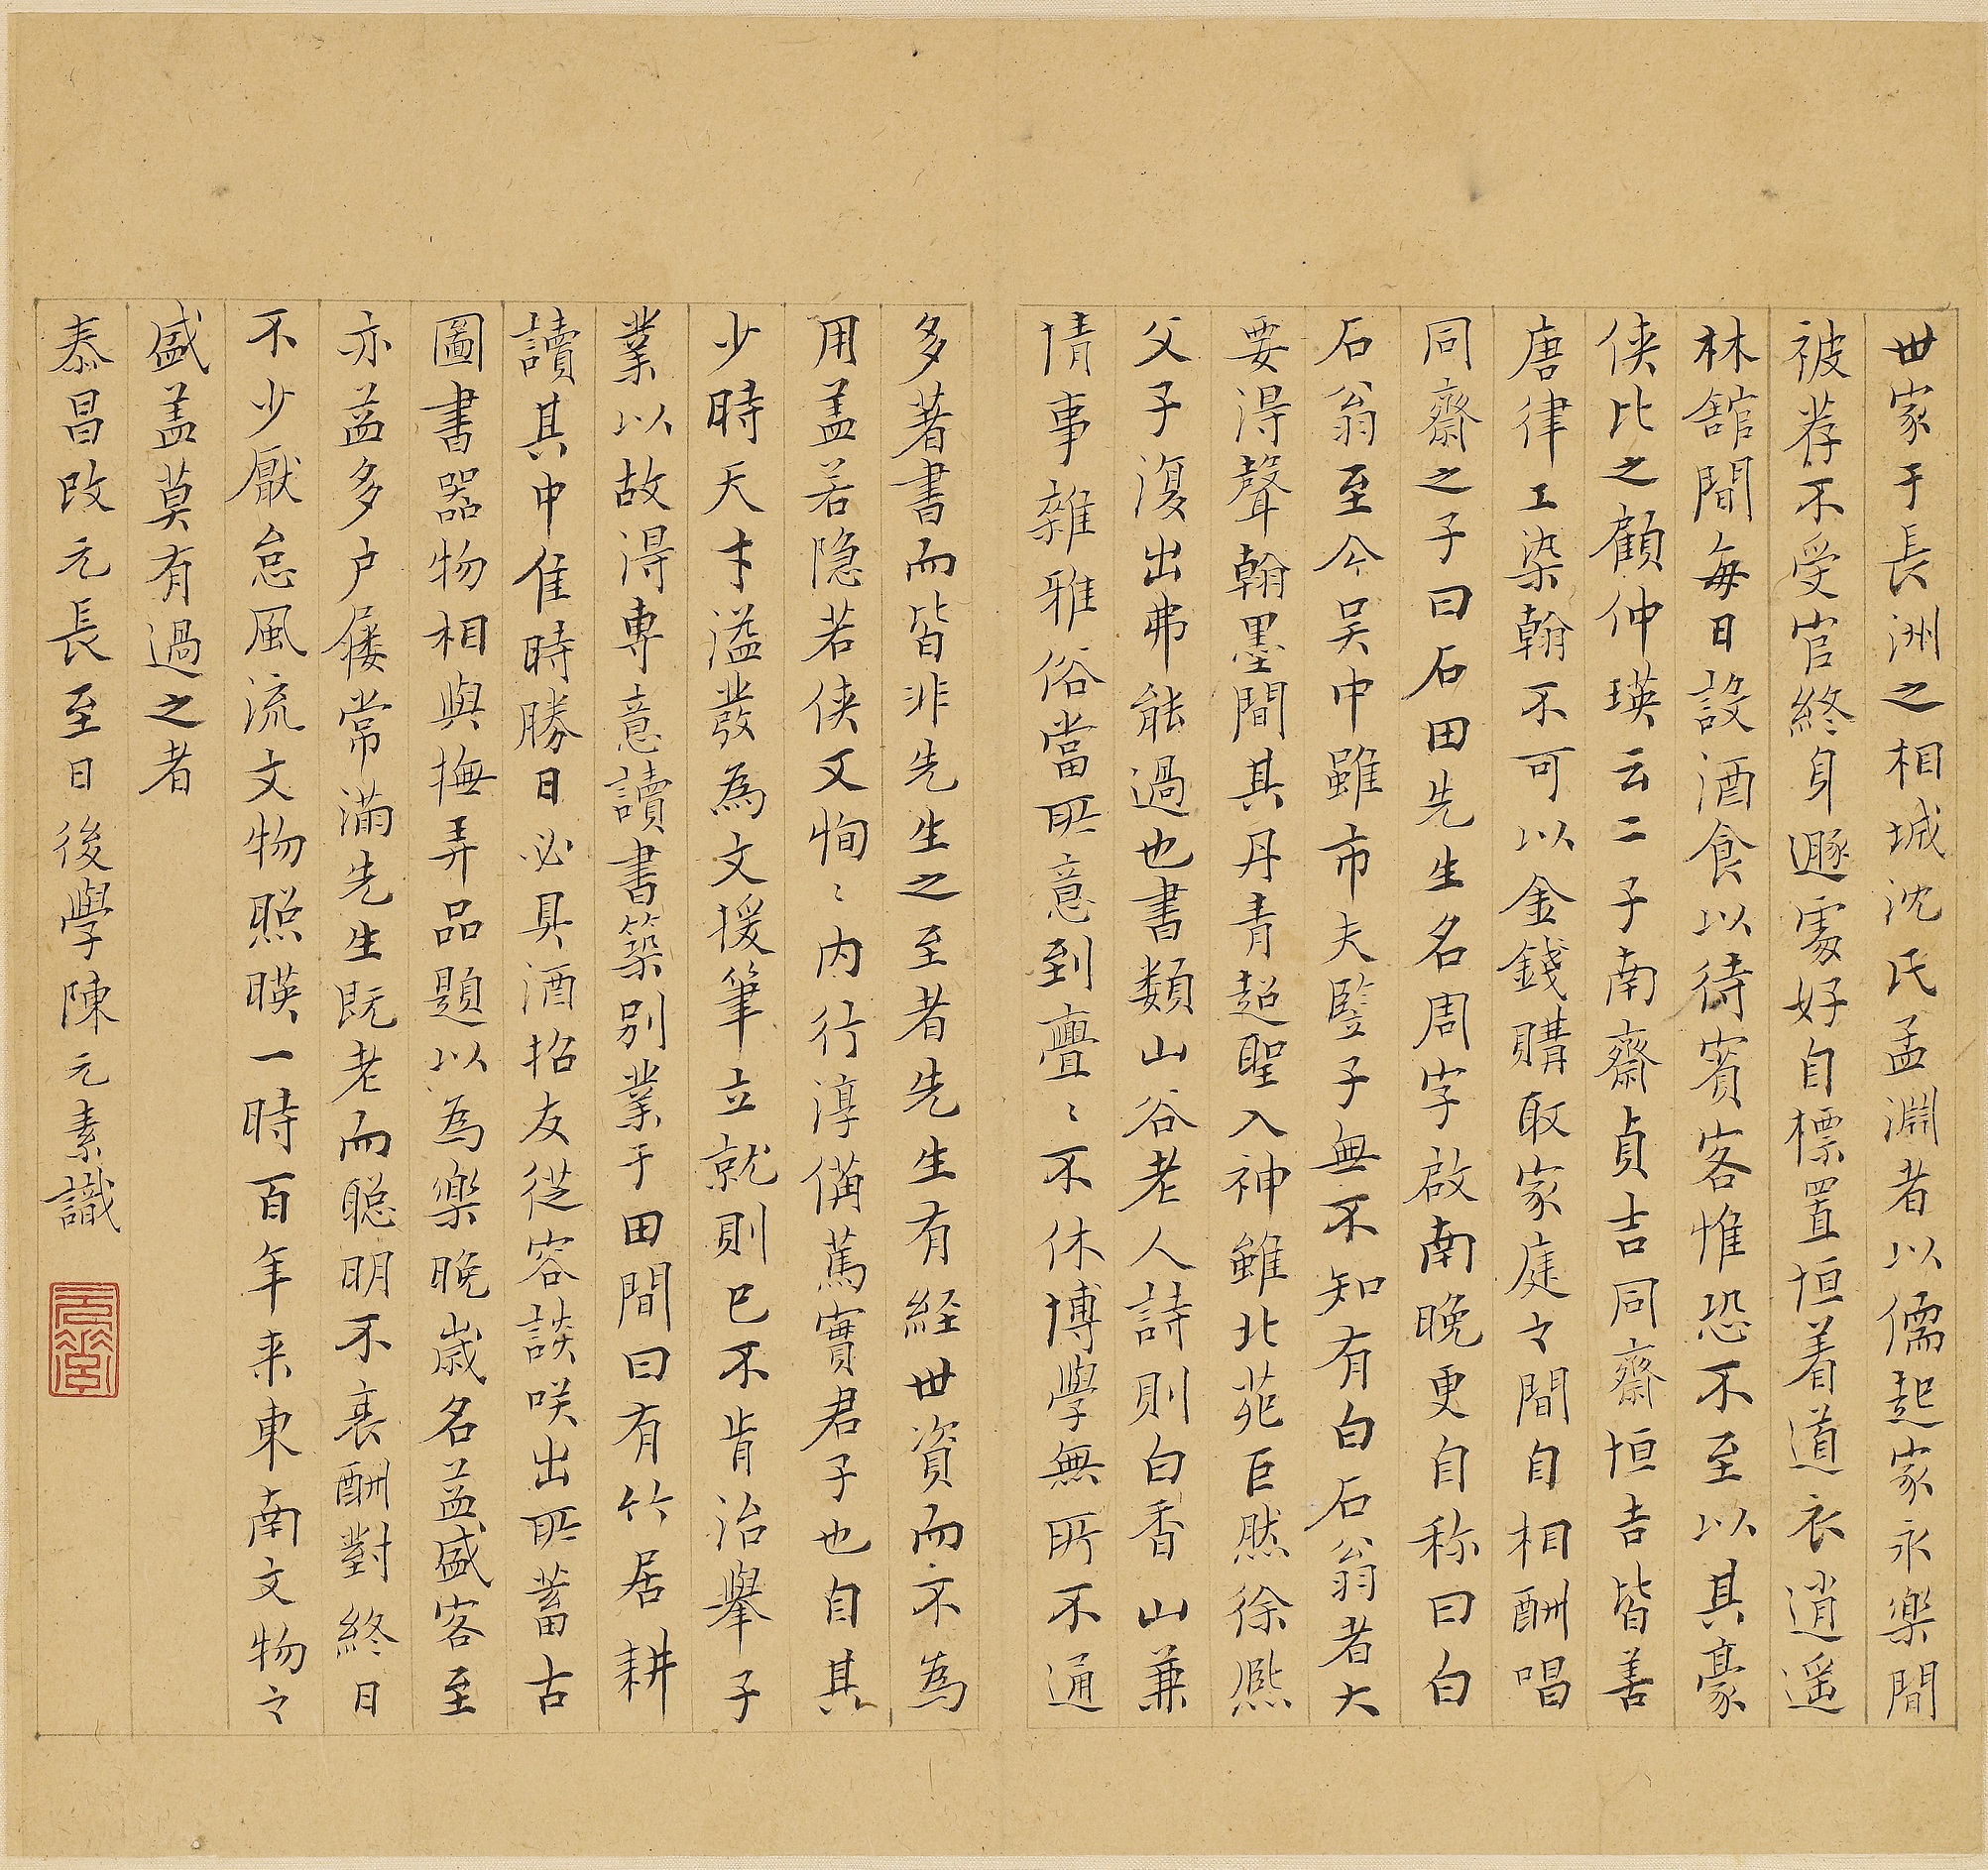 世家于長洲之相城沈氏孟淵者以儒起家永樂間
被荐不受官終身遯處好自標置恒着道衣逍遥
林舘間每日設酒食以待賓客惟恐不至以其豪
侠比之顧仲瑛云二子南齋貞吉同齋恒吉皆善
唐律工染翰不可以金錢購取家庭々間自相酬唱
同齋之子曰石田先生名周字啟南晚更自称曰白
石翁至今吴中雖市夫豎子無不知有白石翁者大
要得聲翰墨間其丹青超聖入神雖北苑巨然徐熈
父子復出弗能過也書類山谷老人詩則白香山兼
情事雜雅俗當所意到亹〻不休博學無所不通
多著書而皆非先生之至者先生有経世資而不為
用盖若隐若侠又恂〻内行淳備篤實君子也自其
少時天才溢發為文援筆立就則已不肯治舉子
業以故得専意讀書築别業于田間曰有竹居耕
讀其中隹時勝日必具酒招友從容談咲出所蓄古
圖書器物相與撫弄品題以為樂晚歳名益盛客至
亦益多户屨常滿先生既老而聰明不衰酬對終日
不少厭怠風流文物照暎一時百年来東南文物々
盛盖莫有過之者
泰昌改元長至日後學陳元素識